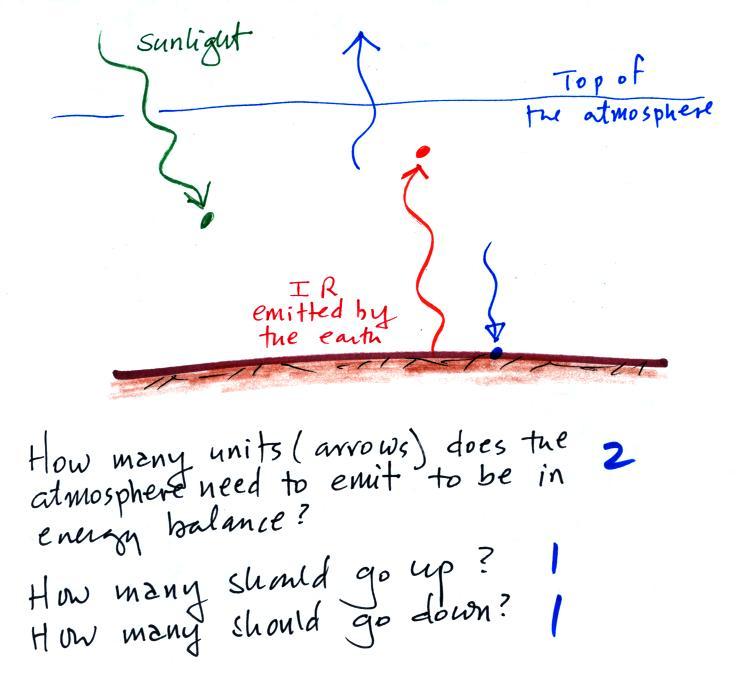 sunlight
Top of
the atmosphere
IR
emitted by
the earth
How many units (arrows) does the
atmosphere need to emit to be in
energy balance?
2
How many should go up? 1
How many should go down? 1